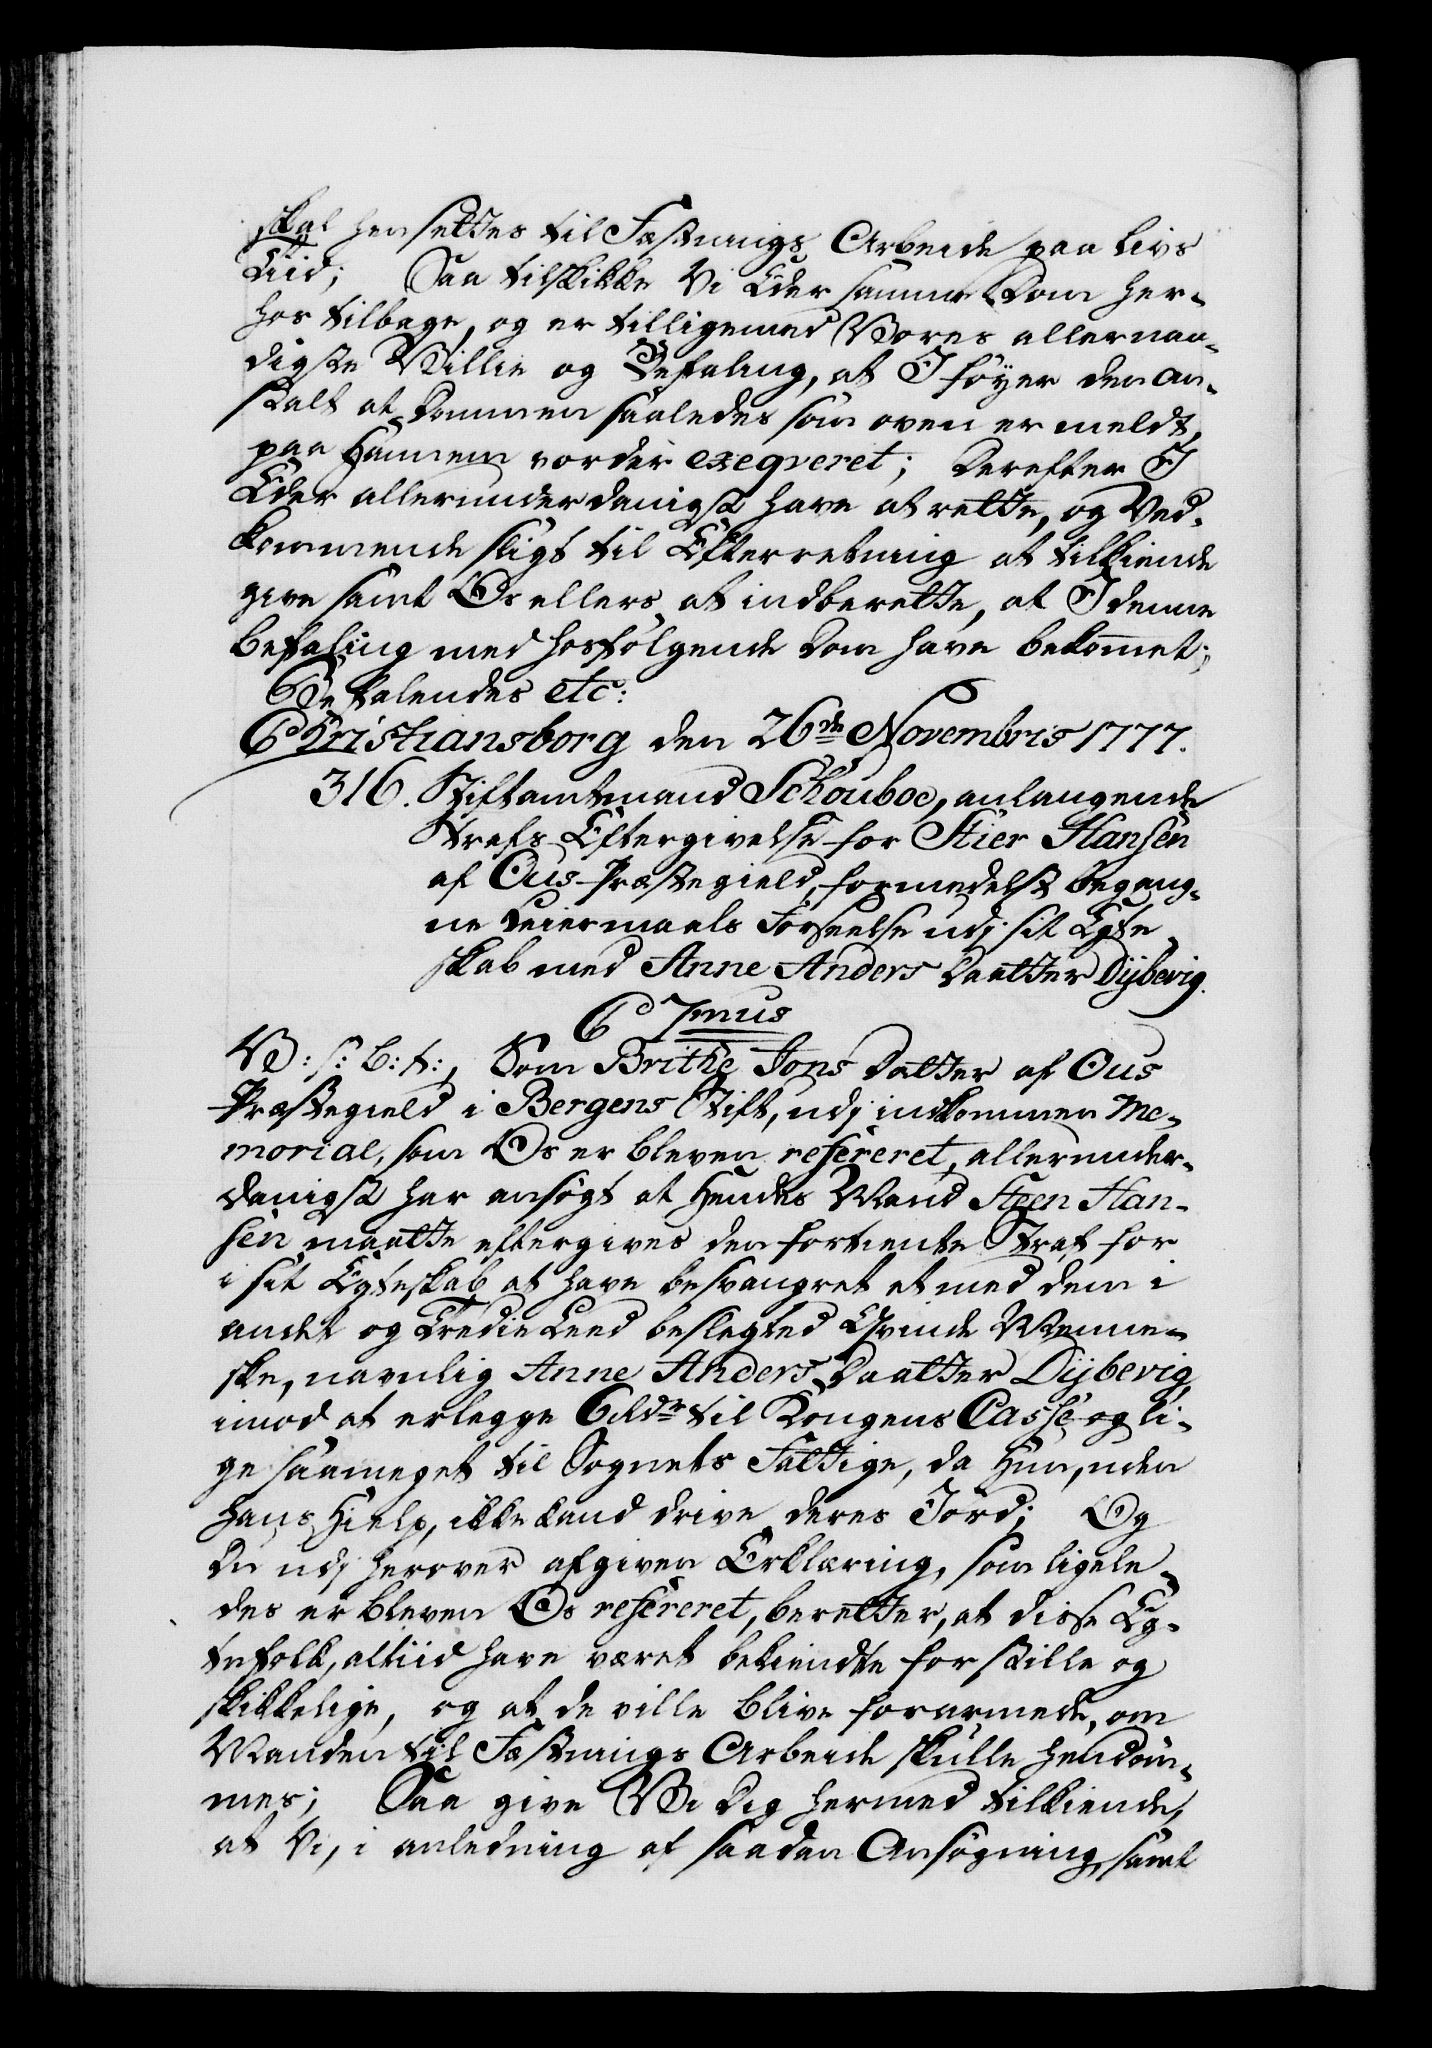 skal hensettes til Fæstnings Arbeide paa livs
Tiid; Saa tilskikke Vi Eder samme Dom her-
hos tilbage, og er tilligemed Vores allernaa-
digste Villie og Befaling, at I føyer den an-
stalt at Dommen saaledes som oven er meldt,
paa Hannem vorder exeqveret; Derefter I
Eder allerunderdanigst have at rette, og Ved-
kommende sligt til Efterretning at tilkiende
give samt Os ellers at indberette, at I denne
befaling med hosfølgende Dom have bekommet;
Befalendes etc:
Christiansborg den 26de Novembris 1777.
316. Stiftamtmand Schouboe, anlangende
Strafs Eftergivelse for Stier Hansen
af Ous Præstegield, formedelst begang-
ne Leiermaals Forseelse udj sit Egte-
skab med Anne Anders Daatter Dijbevig.
C 7mus
V: s: b: t:, Som Brithe Jons Datter af Ous
Præstegield i Bergens Stift, udj indkommen Me-
morial, som Os er bleven refereret, allerunder-
danigst har ansøgt at Hendes Mand Steen Han-
sen maatte eftergives den fortiente Straf for
i sit Egteskab at have besvangret et med dem i
andet og Tredie Leed beslegted Qvinde Menne-
ske, navnlig Anne Anders Daatter Dijbevig,
imod at erlegge 6 Rdr til Kongens Casse og li-
ge saameget til Sognets Fattige, da Hun, uden
hans Hielp, ikke kand drive deres Jord; Og
Du udj herover afgiven Erklæring, som ligele-
des er bleven Os refereret, beretter, at disse Eg-
tefolk, altiid have været bekiendte for stille og
skikkelige, og at de ville blive forarmede, om
Manden til Fæstnings Arbeide skulle hendøm-
mes; Saa give Vi Dig hermed tilkiende,
at Vi, i anledning af saadan Ansøgning, samt